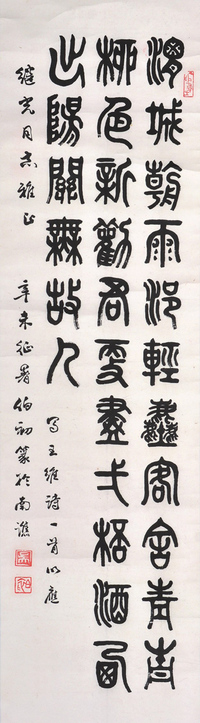 渭城朝雨浥輕塵客舍青青
柳色新勸君更盡弌桮酒西
出陽關無故人
寫王維詩一首以應
繼光同志雅正 辛未征暑伯初篆於南譙